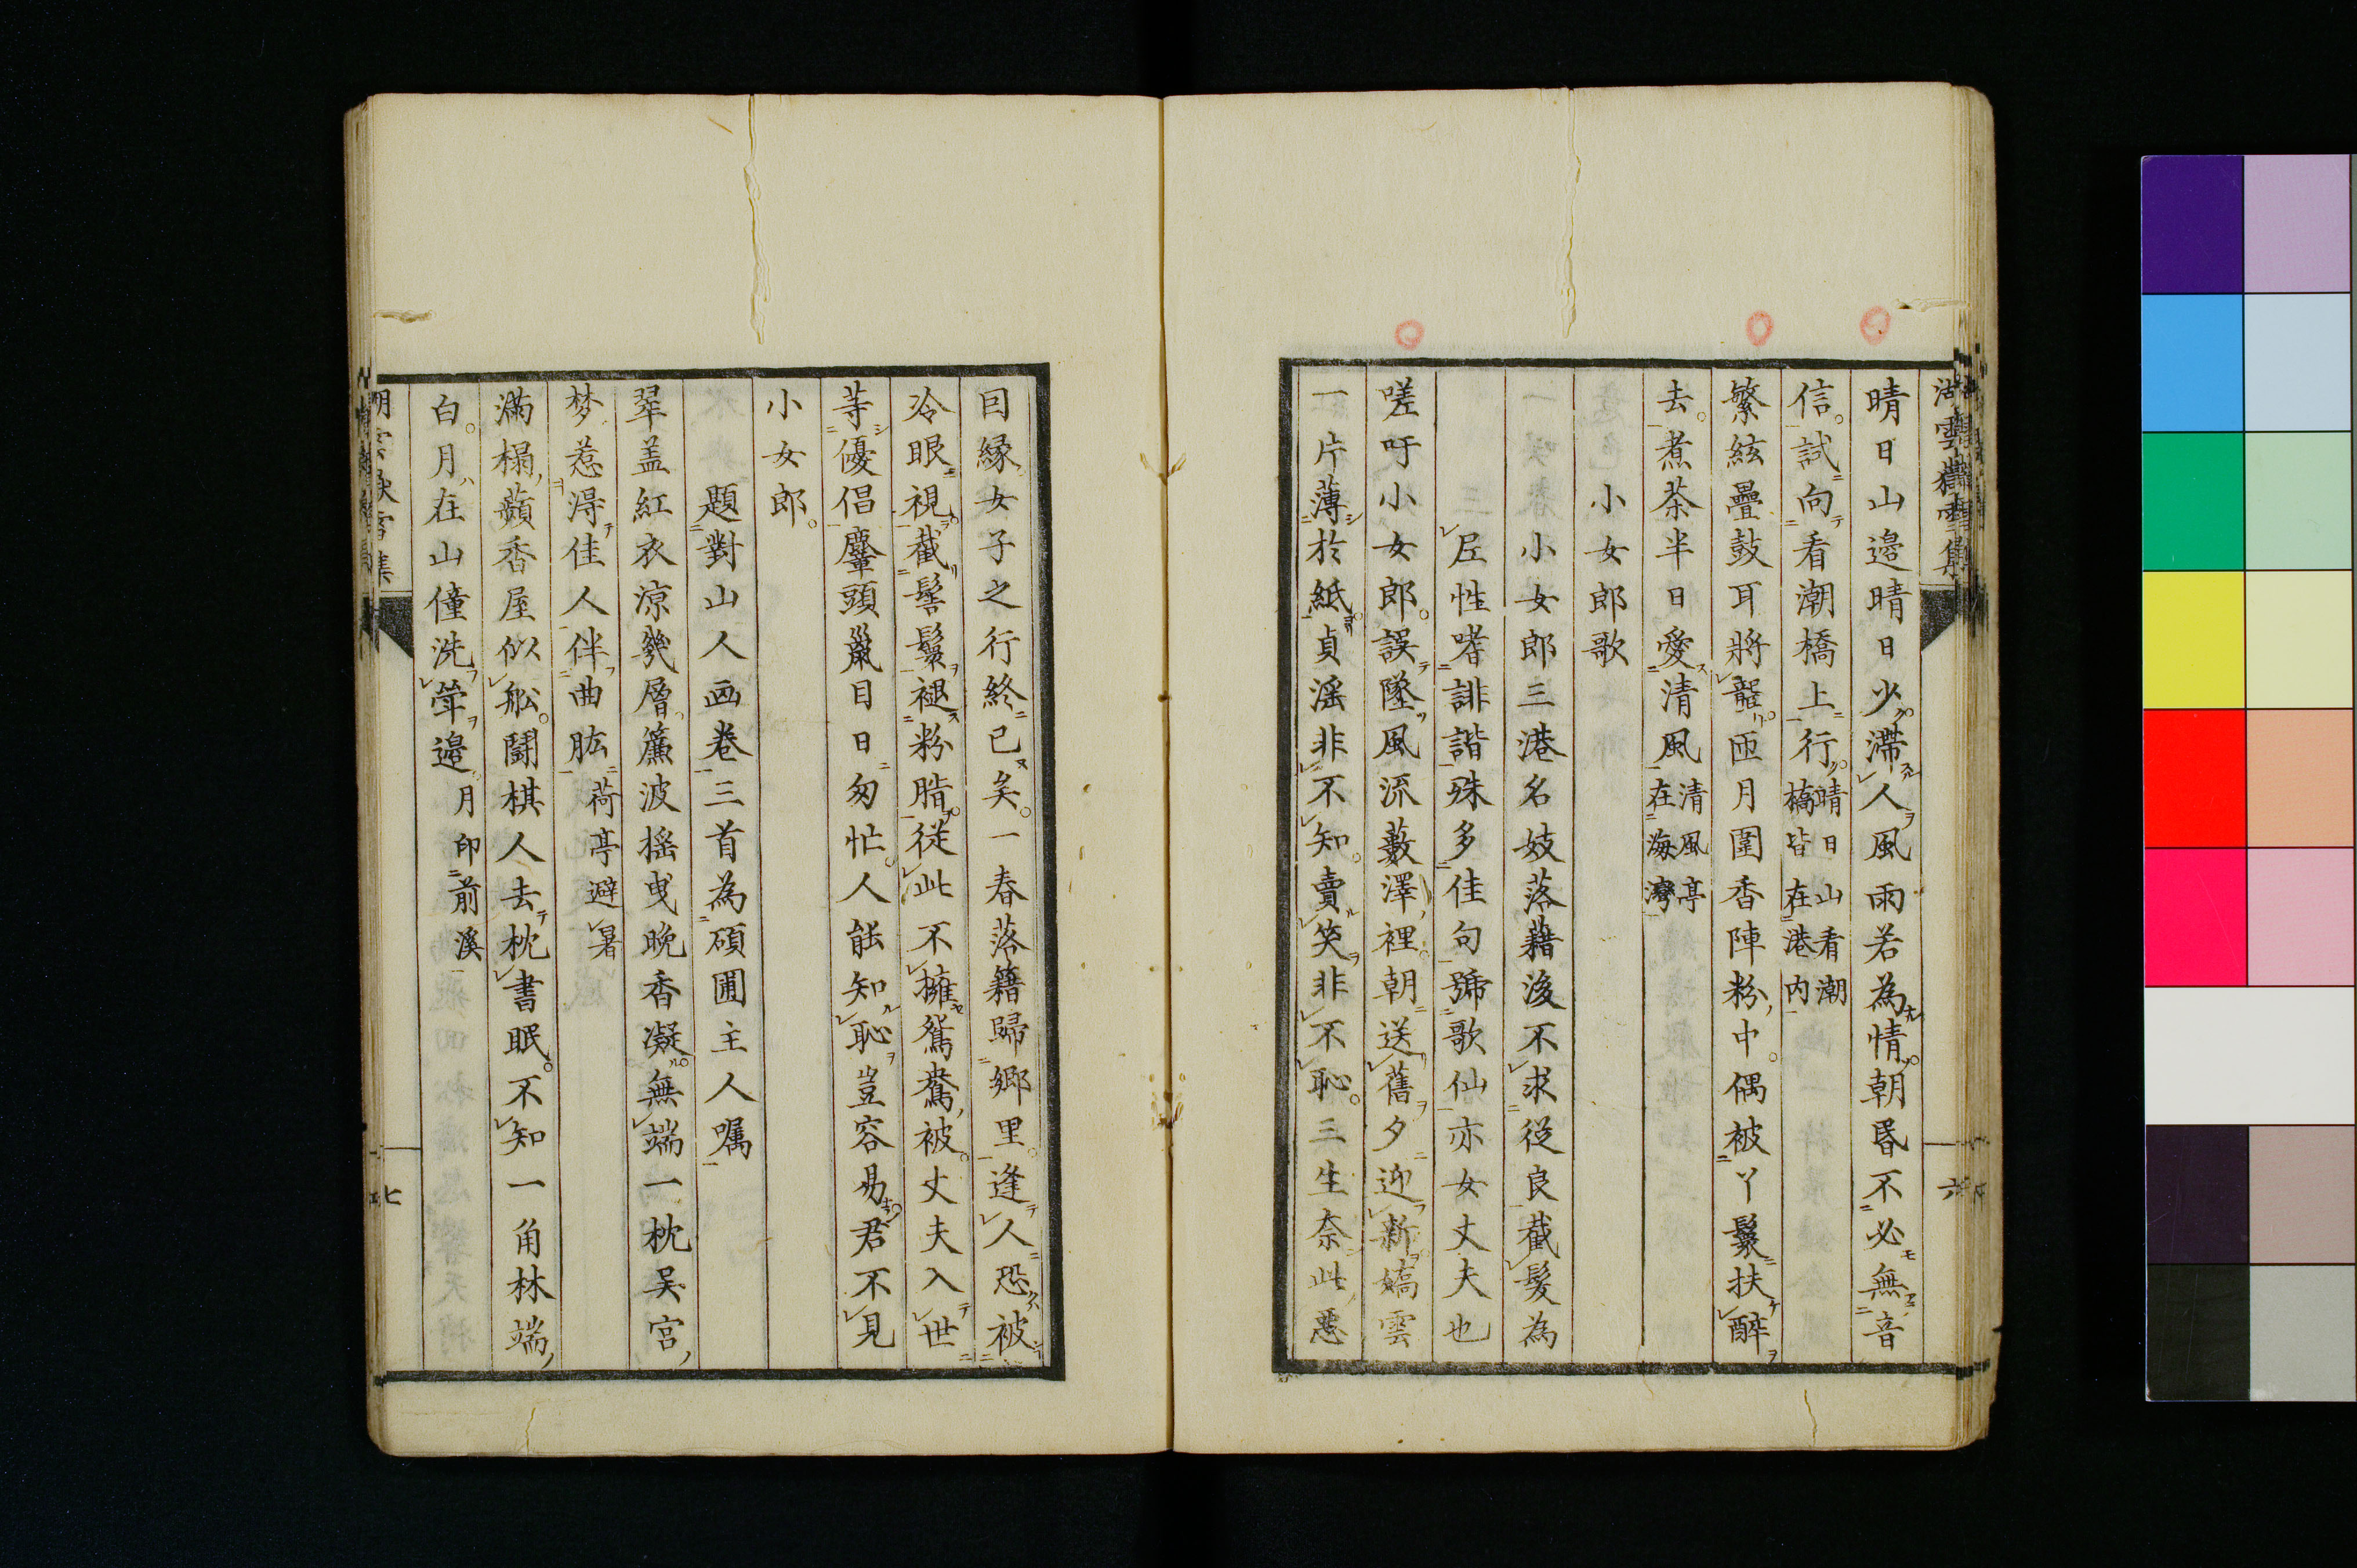 晴日山邉晴日少滯人風雨若為情朝昏不必無音
信試向看潮橋上行晴日山看潮橋皆在港内
繁絃疊鼓耳將聾匝月圍香陣粉中偶被丫鬟扶醉
去煮茶半日愛清風清風亭在海灣
小女郎歌
小女郎三港名妓落籍後不求從良截髪為
尼性嗜誹諧殊多佳句號歌仙亦女丈夫也
嗟吁小女郎誤墜風流藪澤裡朝送舊夕迎新嬌雲
一片薄於紙貞滛非不知賣笑非不恥三生奈此惡
因縁女子之行終已矣一春落籍歸郷里逢人恐被
冷眼視截髻鬟褪粉脂從此不擁鴛鴦被丈夫入世
等優倡鏖頭鼠目日匆忙人能知恥豈容易君不見
小女郎
題對山人画巻三首為碩圃主人嘱
翠盖紅衣凉幾層簾波揺曳晩香凝無端一枕吴宮
梦惹得佳人伴曲肱荷亭避暑
滿榻蘋香屋似舩鬪棋人去枕書眠不知一角林端
白月在山僮洗硯邉月印前溪
六
七